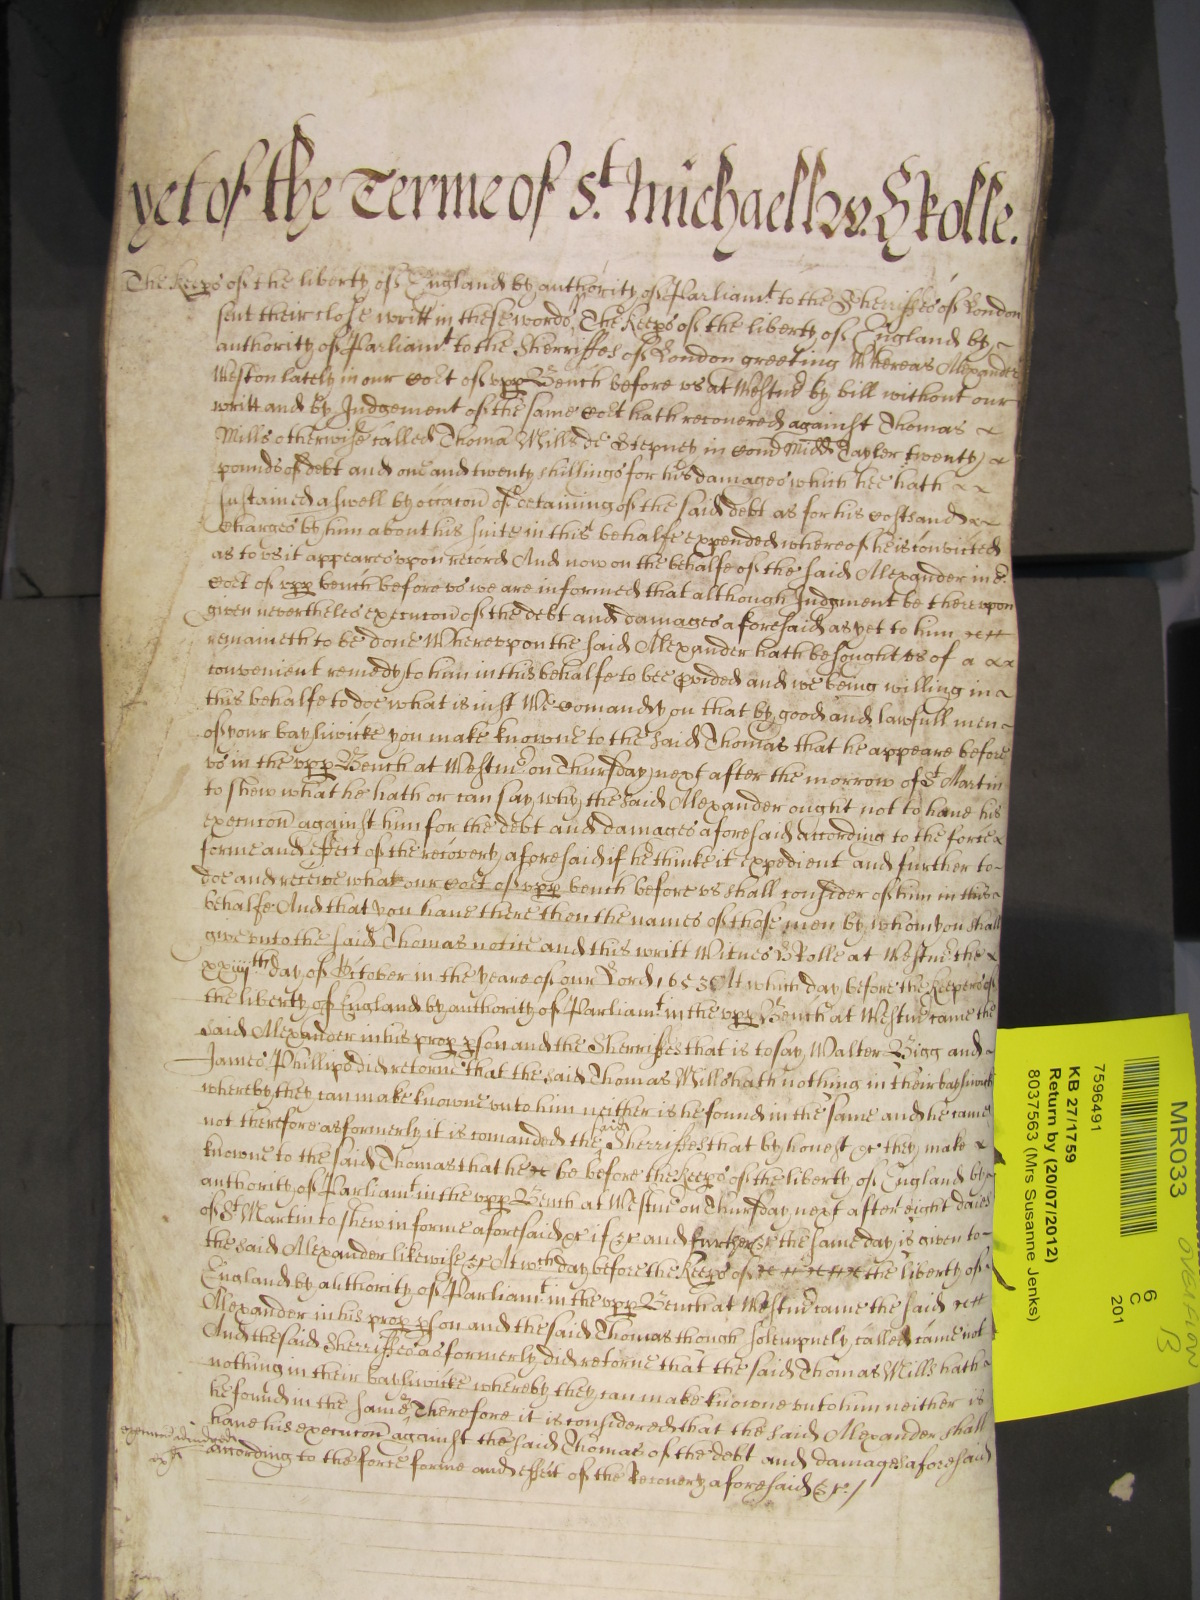 yet of the Terme of St. Michaell w. H Rolle.
The Keeps of the liberty of England by authority of Parliamt. to the Sherriffes of London
sent their close writt in these words The Keeps of the liberty of England by
authority of Parliamt to the Sherriffes of London greeting Whereas Alexander
Weston lately in our Cort of upp Bench before us at Westm by bill without our
writt and by Judgement of the same Cort hath recovered against Thomas
Mills otherwise called Thoma Mills de Stepney in Com Midd Tayler twenty
pounds of debt and one and twenty shillings for his damages which hee hath
sustained aswell by occacon of detaining of the said debt as for his costs and
charges by him about his suite in this behalfe expended whereof he is convicted
as to us it appeares upon record And now on the behalfe of the said Alexander in
Cort of upp bench before us we are informed that although Judgment be thereupon
given nevertheles execucon of the debt and damages aforesaid as yet to him
remaineth to be done Whereupon the said Alexander hath besought us of a
convenient remedy to him in this behalfe to bee pvided and we being willing in
this behalfe to doe what is just We comand you that by good and lawfull men
of your bayliwicke you make knowne to the said Thomas that he appeare before
us in the upp Bench at Westm on Thursday next after the morrow of St Martin
to shew what he hath or can say why the said Alexander ought not to have his
execucon against him for the debt and damages aforesaid according to the force
forme and effect of the recovery aforesaid if he thinke it expedient and further to
doe and receive what our Cort of upp bench before us shall consider of him in this
behalfe And that you have there then the names of those men by whom you shall
give unto the said Thomas notice and this writt Witnes H Rolle at Westm the
xxiiijth day of October in the yeare of our Lord 1653 At which day before the Keepers of
the liberty of England by authority of Parliamt in the upp Bench at Westm came the
said Alexander in his prop pson and the Sherriffes that is to say Walter Bigg and
James Phillips did retorne that the said Thomas Mills hath nothing in their bayliwick
whereby they can make knowne unto him neither is he found in the same and he came
not therefore as formerly it is comanded the said Sherriffes that by honest &c they make
knowne to the said Thomas that he be before the Keeps of the liberty of England by
authority of Parliamt in the upp Bench at Westm on Thursday next after eight daies
of St Martin to shew in forme aforesaid &c if &c and further &c the same day is given to
the said Alexander likewise &c At wch day before the Keeps of the liberty of
England by authority of Parliamt in the upp Bench at Westm came the said
Alexander in his prop pson and the said Thomas though solempnely called came not
And the said Sherriffes as formerly did retorne that the said Thomas Mills hath
nothing in their bayliwicke whereby they can make knowne unto him neither is
he found in the same Therefore it is considered that the said Alexander shall
have his execucon against the said Thomas of the debt and damages aforesaid
according to the force forme and effect of the Recovery aforesaid &c. /
MR033
7596491
KB 27/1759
Return by (20/07/2012)
8037563 (Mrs Susanne Jenks)
6
C
201